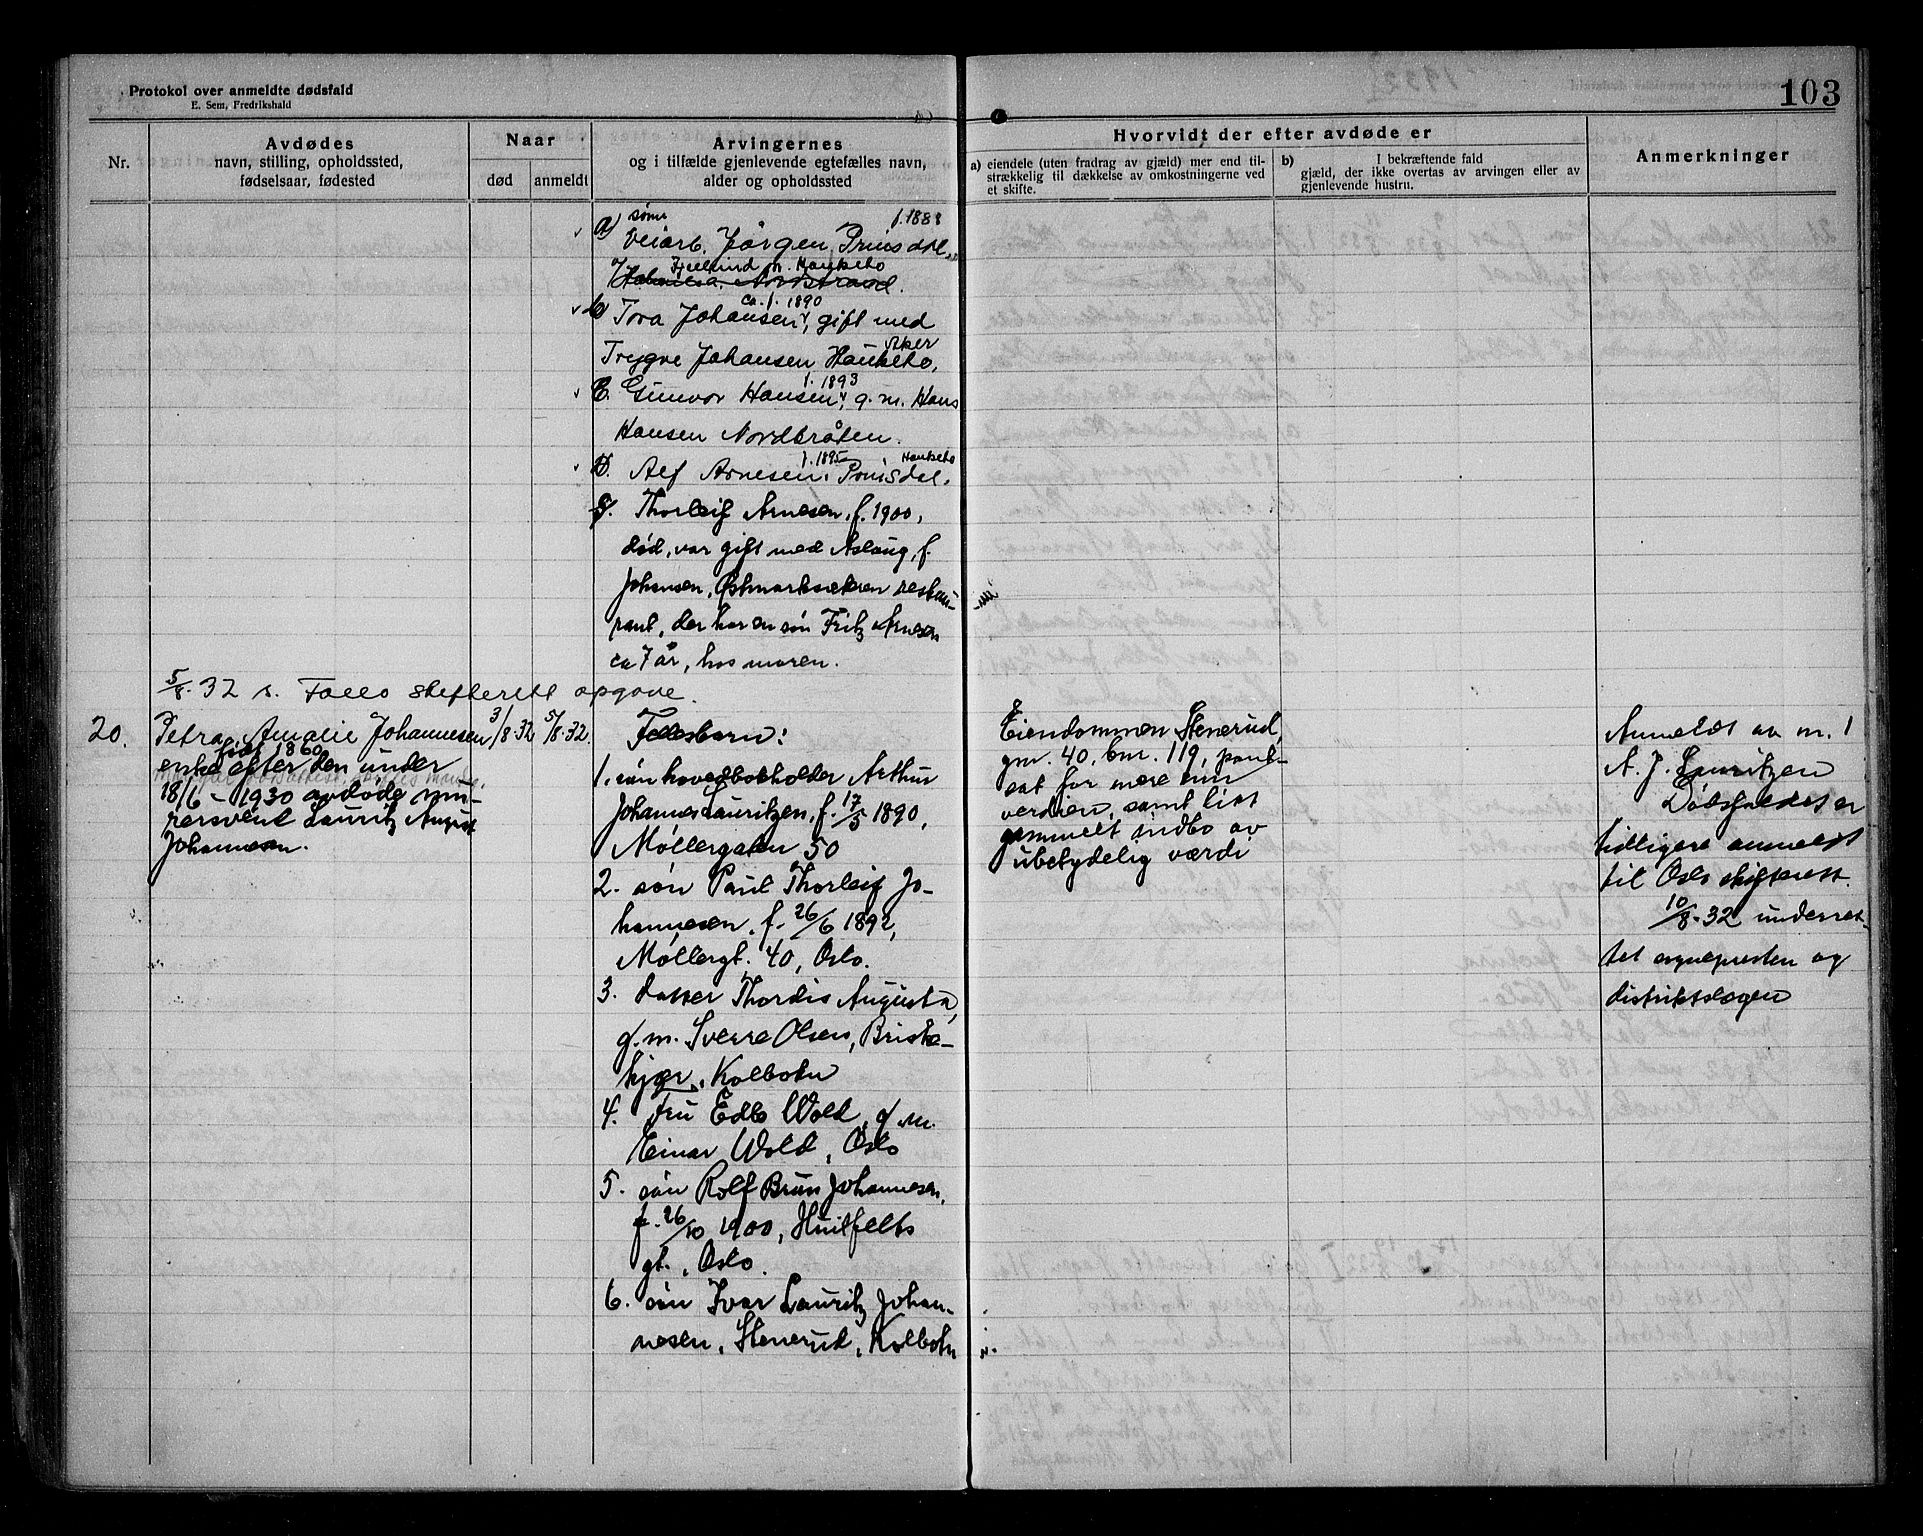 Protokol over anmeldte dødsfald
E. Sem, Fredrikshald
103
Nr.
Avdødes
navn, stilling, opholdssted,
fødselsaar, fødested
Naar
død
anmeldt
Arvingernes
og i tilfælde gjenlevende egtefælles navn,
alder og opholdssted
Hvorvidt der efter avdøde er
a) eiendele (uten fradrag av gjæld) mer end til-
strækkelig til dækkelse av omkostningerne ved
et skifte.
b) I bekræftende fald
gjæld, der ikke overtas av arvingen eller av
gjenlevende hustru.
Anmerkninger
sønn f. 1888
a) Veiarb. Jørgen Prinsdal,
Fjellsind p. Hauketo
Nordstrand.
ca. f. 1890
b) Tora Johansen, gift med
Aker
Trygve Johansen Hauketo,
f. 1893
C. Gunvor Hansen, g. m. Hans
Hansen Nordbråten.
f. 1895 Hauketo
D. Alf Arnesen, Prinsdal.
Thorleif Arnesen, f. 1900,
død, var gift med Aslaug, f.
Johansen, Østmarksæteren restau-
rant, der har en søn Fritz Arnesen
ca 7 år, hos moren.
5/8-32 s. Follo skifterett opgave
20. Petra Amalie Johannesen 3/8-32 5/8-32.
født 1860
enke efter den under
18/6-1930 avdøde mu-
rersvend Lauritz August
Johannesen.
Fellesbarn:
1. søn hovedbokholder Arthur
Johannes Lauritzen, f. 17/5 1890,
Møllergaten 50
2. søn Paul Thorleif Jo-
hannesen, f. 26/6 1892,
Møllergt. 40, Oslo.
3. datter Thordis Augusta,
g. m. Sverre Olsen, Briske-
kjær, Kolbotn
4. Fru Edle Wold, g. m.
Einar Wold, Oslo
5. søn Rolf Brun Johannesen,
f. 26/10 1900, Huitfelts
gt., Oslo.
6. søn Ivar Lauritz Johan-
nesen, Stenerud, Kolbotn
Eiendommen Stenerud,
gnr. 40, bnr. 119, pant-
sat for mere enn
verdien, samt litt
gammelt indbo av
ubetydelig værdi
Anmeldt av nr. 1
A. J. Lauritzen
Dødsfaldet er
tidligere anmeldt
til Oslo skifterett.
10/8-32 underret-
tet sognepresten og
distriktslægen